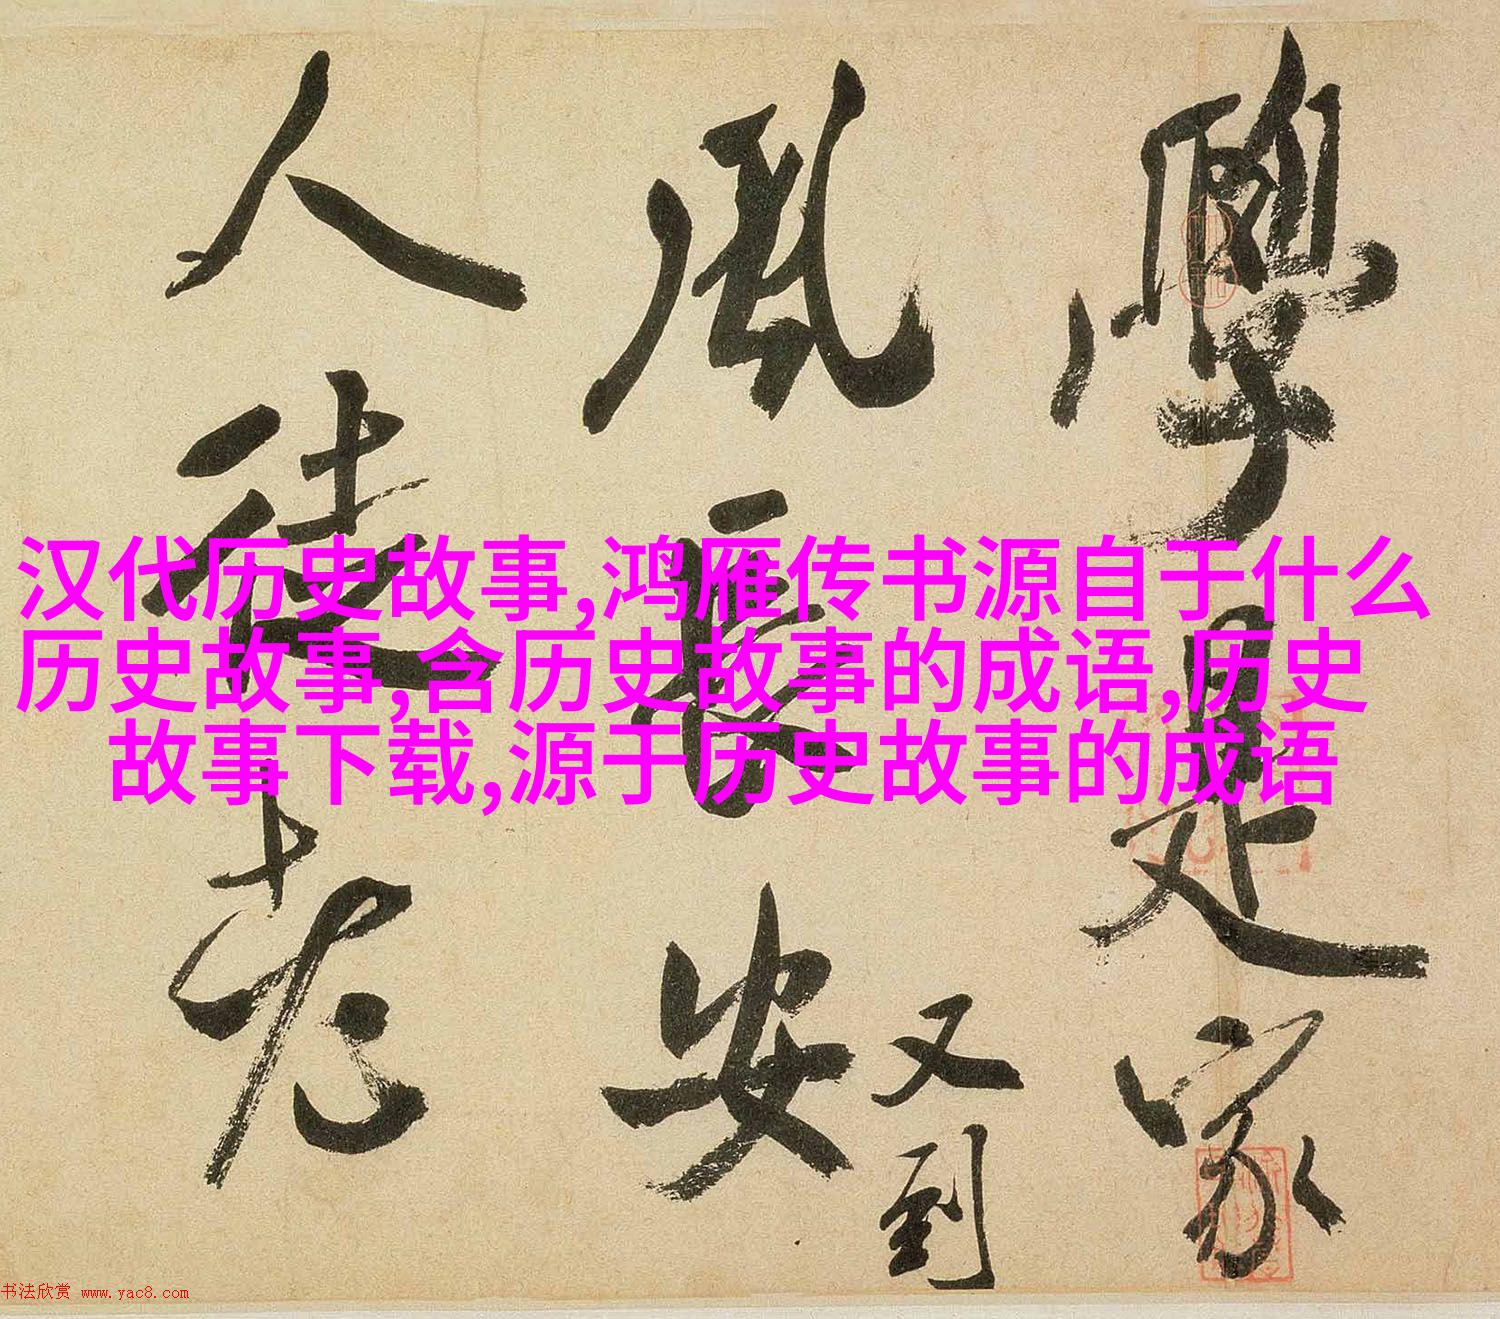 學是家
風長安
又到
人徒老
汉代历史故事,鸿雁传书源自于什么
历史故事,含历史故事的成语,历史
故事下载,源于历史故事的成语
书法欣赏 www.yac8.com